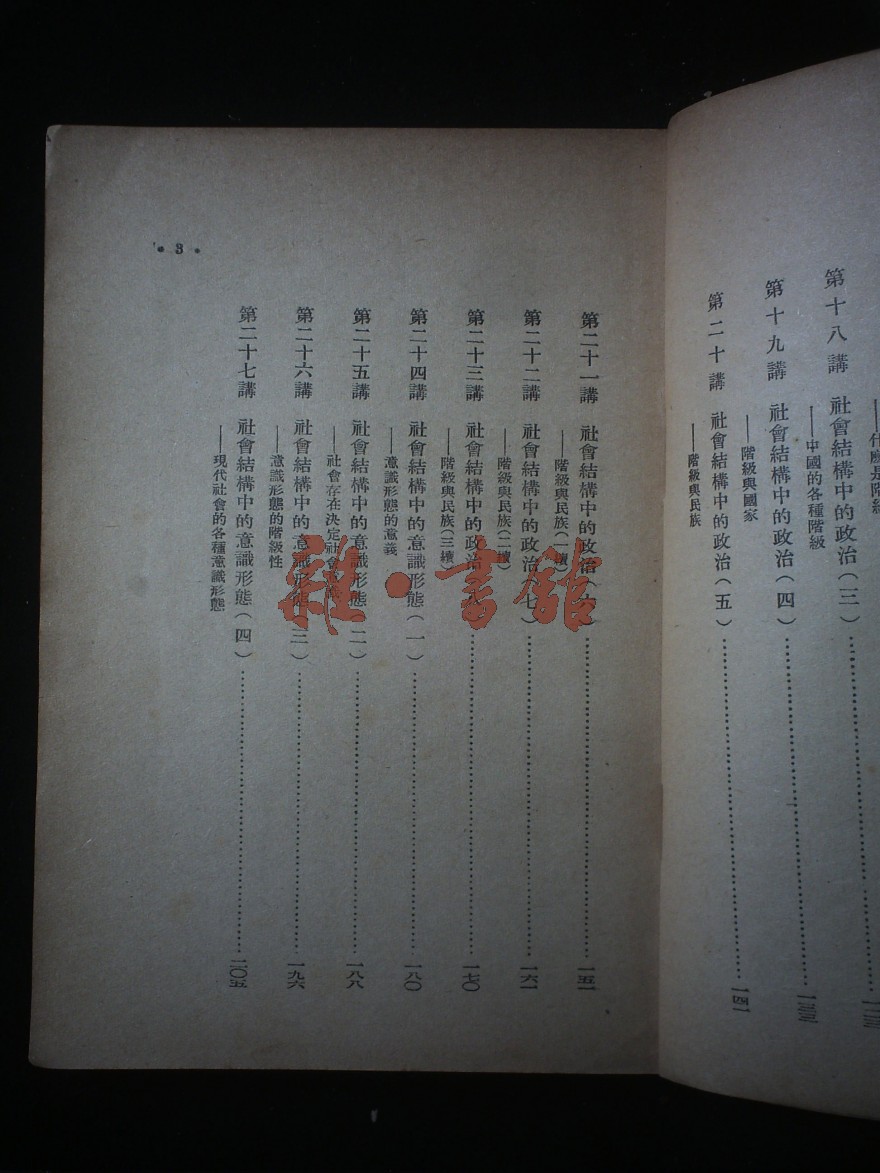 什麽是階級
第十八講 社會結構中的政治(三)
——中國的各種階級
第十九講 社會結構中的政治(四)
——階級與國家
第二十講 社會結構中的政治(五) 一四一
——階級與民族
第二十一講 社會結構中的政治(六) 一五一
——階級與民族(一續)
第二十二講 社會結構中的政治(七) 一六一
——階級與民族(二續)
第二十三講 社會結構中的政治 一七〇
——階級與民族(三續)
第二十四講 社會結構中的意識形態(一) 一八〇
——意識形態的意義
第二十五講 社會結構中的意識形態(二) 一八八
——社會存在決定社會
第二十六講 社會結構中的意識形態(三) 一九六
——意識形態的階級性
第二十七講 社會結構中的意識形態(四) 二〇五
——現代社會的各種意識形態
• 3 •
雜·書館